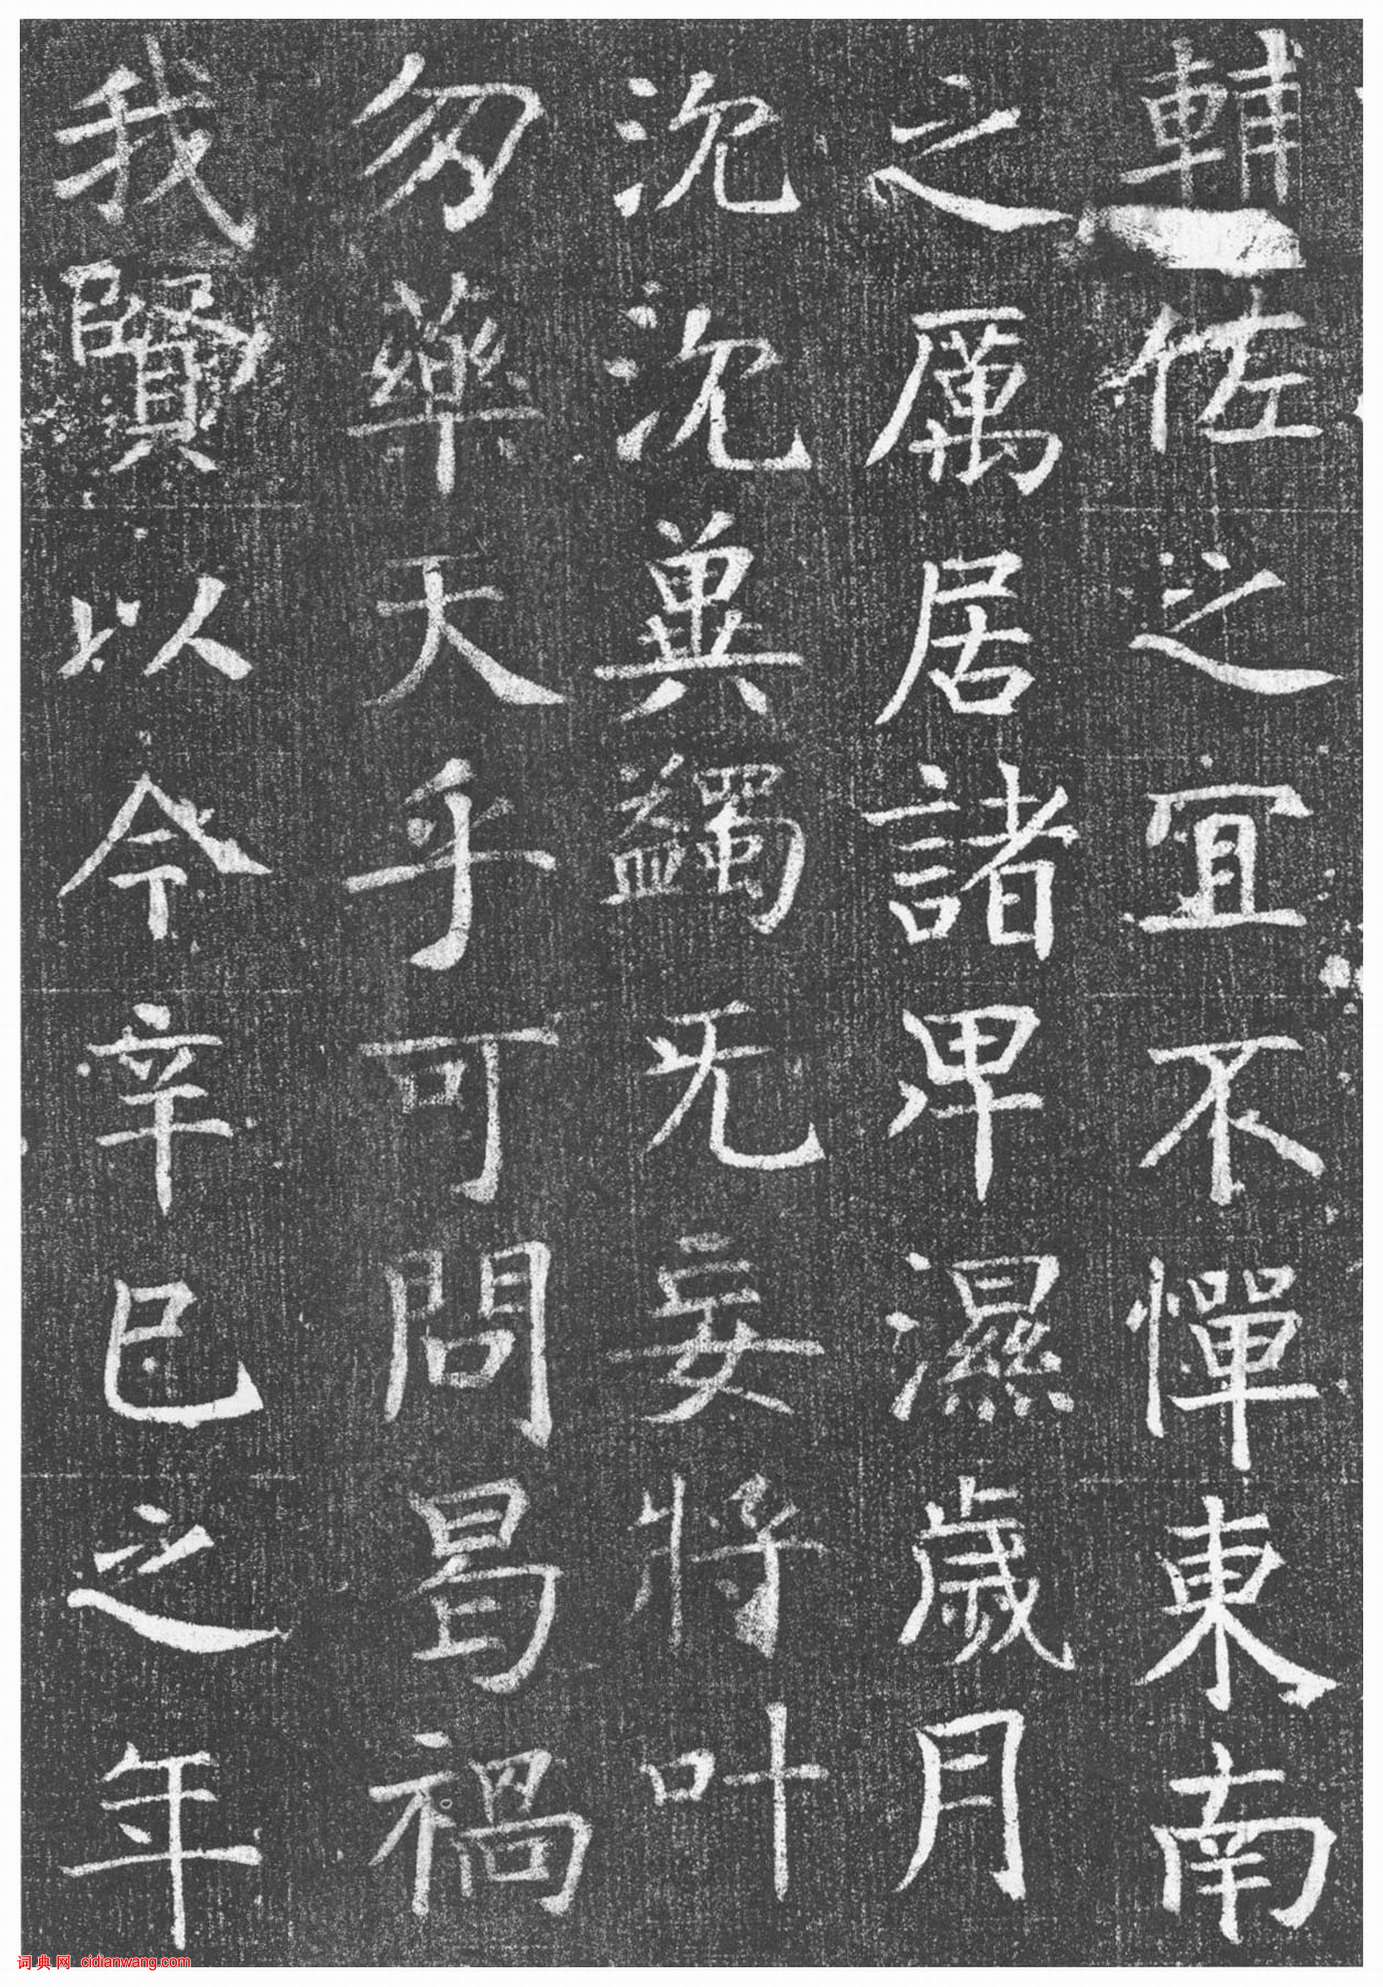 輔佐之冝不憚東南
之厲居諸卑濕歲月
沉沉兾蠲无妄將叶
勿藥天乎可問曷禍
我賢以今辛巳之年
词典网 cidianwang.com